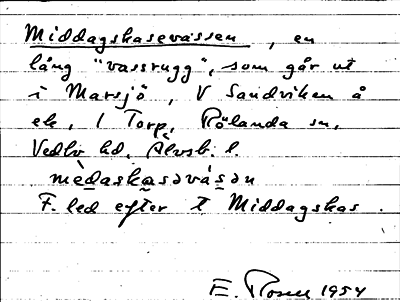 Middagskasevassen, en
lång "vassrugg", som går ut
i Marsjö, V Sandviken å
ek, 1 Torp, Rölanda sn,
Vedbo hd, Älvsb. l.
mèdaskasəvásən
F. led efter t Middagskas.
E. Rosell 1954